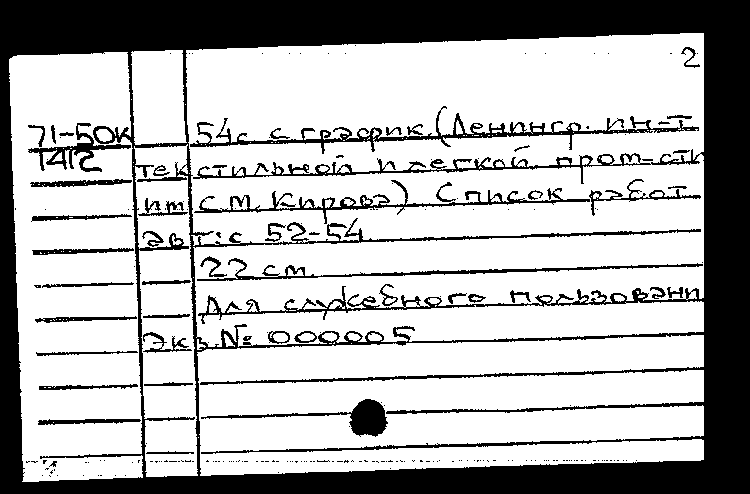 2
71-50к 54с с график. (Ленингр. ин-т
1412 текстильной и легкой пром-сти
им С.М. Кирова) Список работ
авт: с 52-54
22 см.
Для служебного пользовани
Экз. № 000005